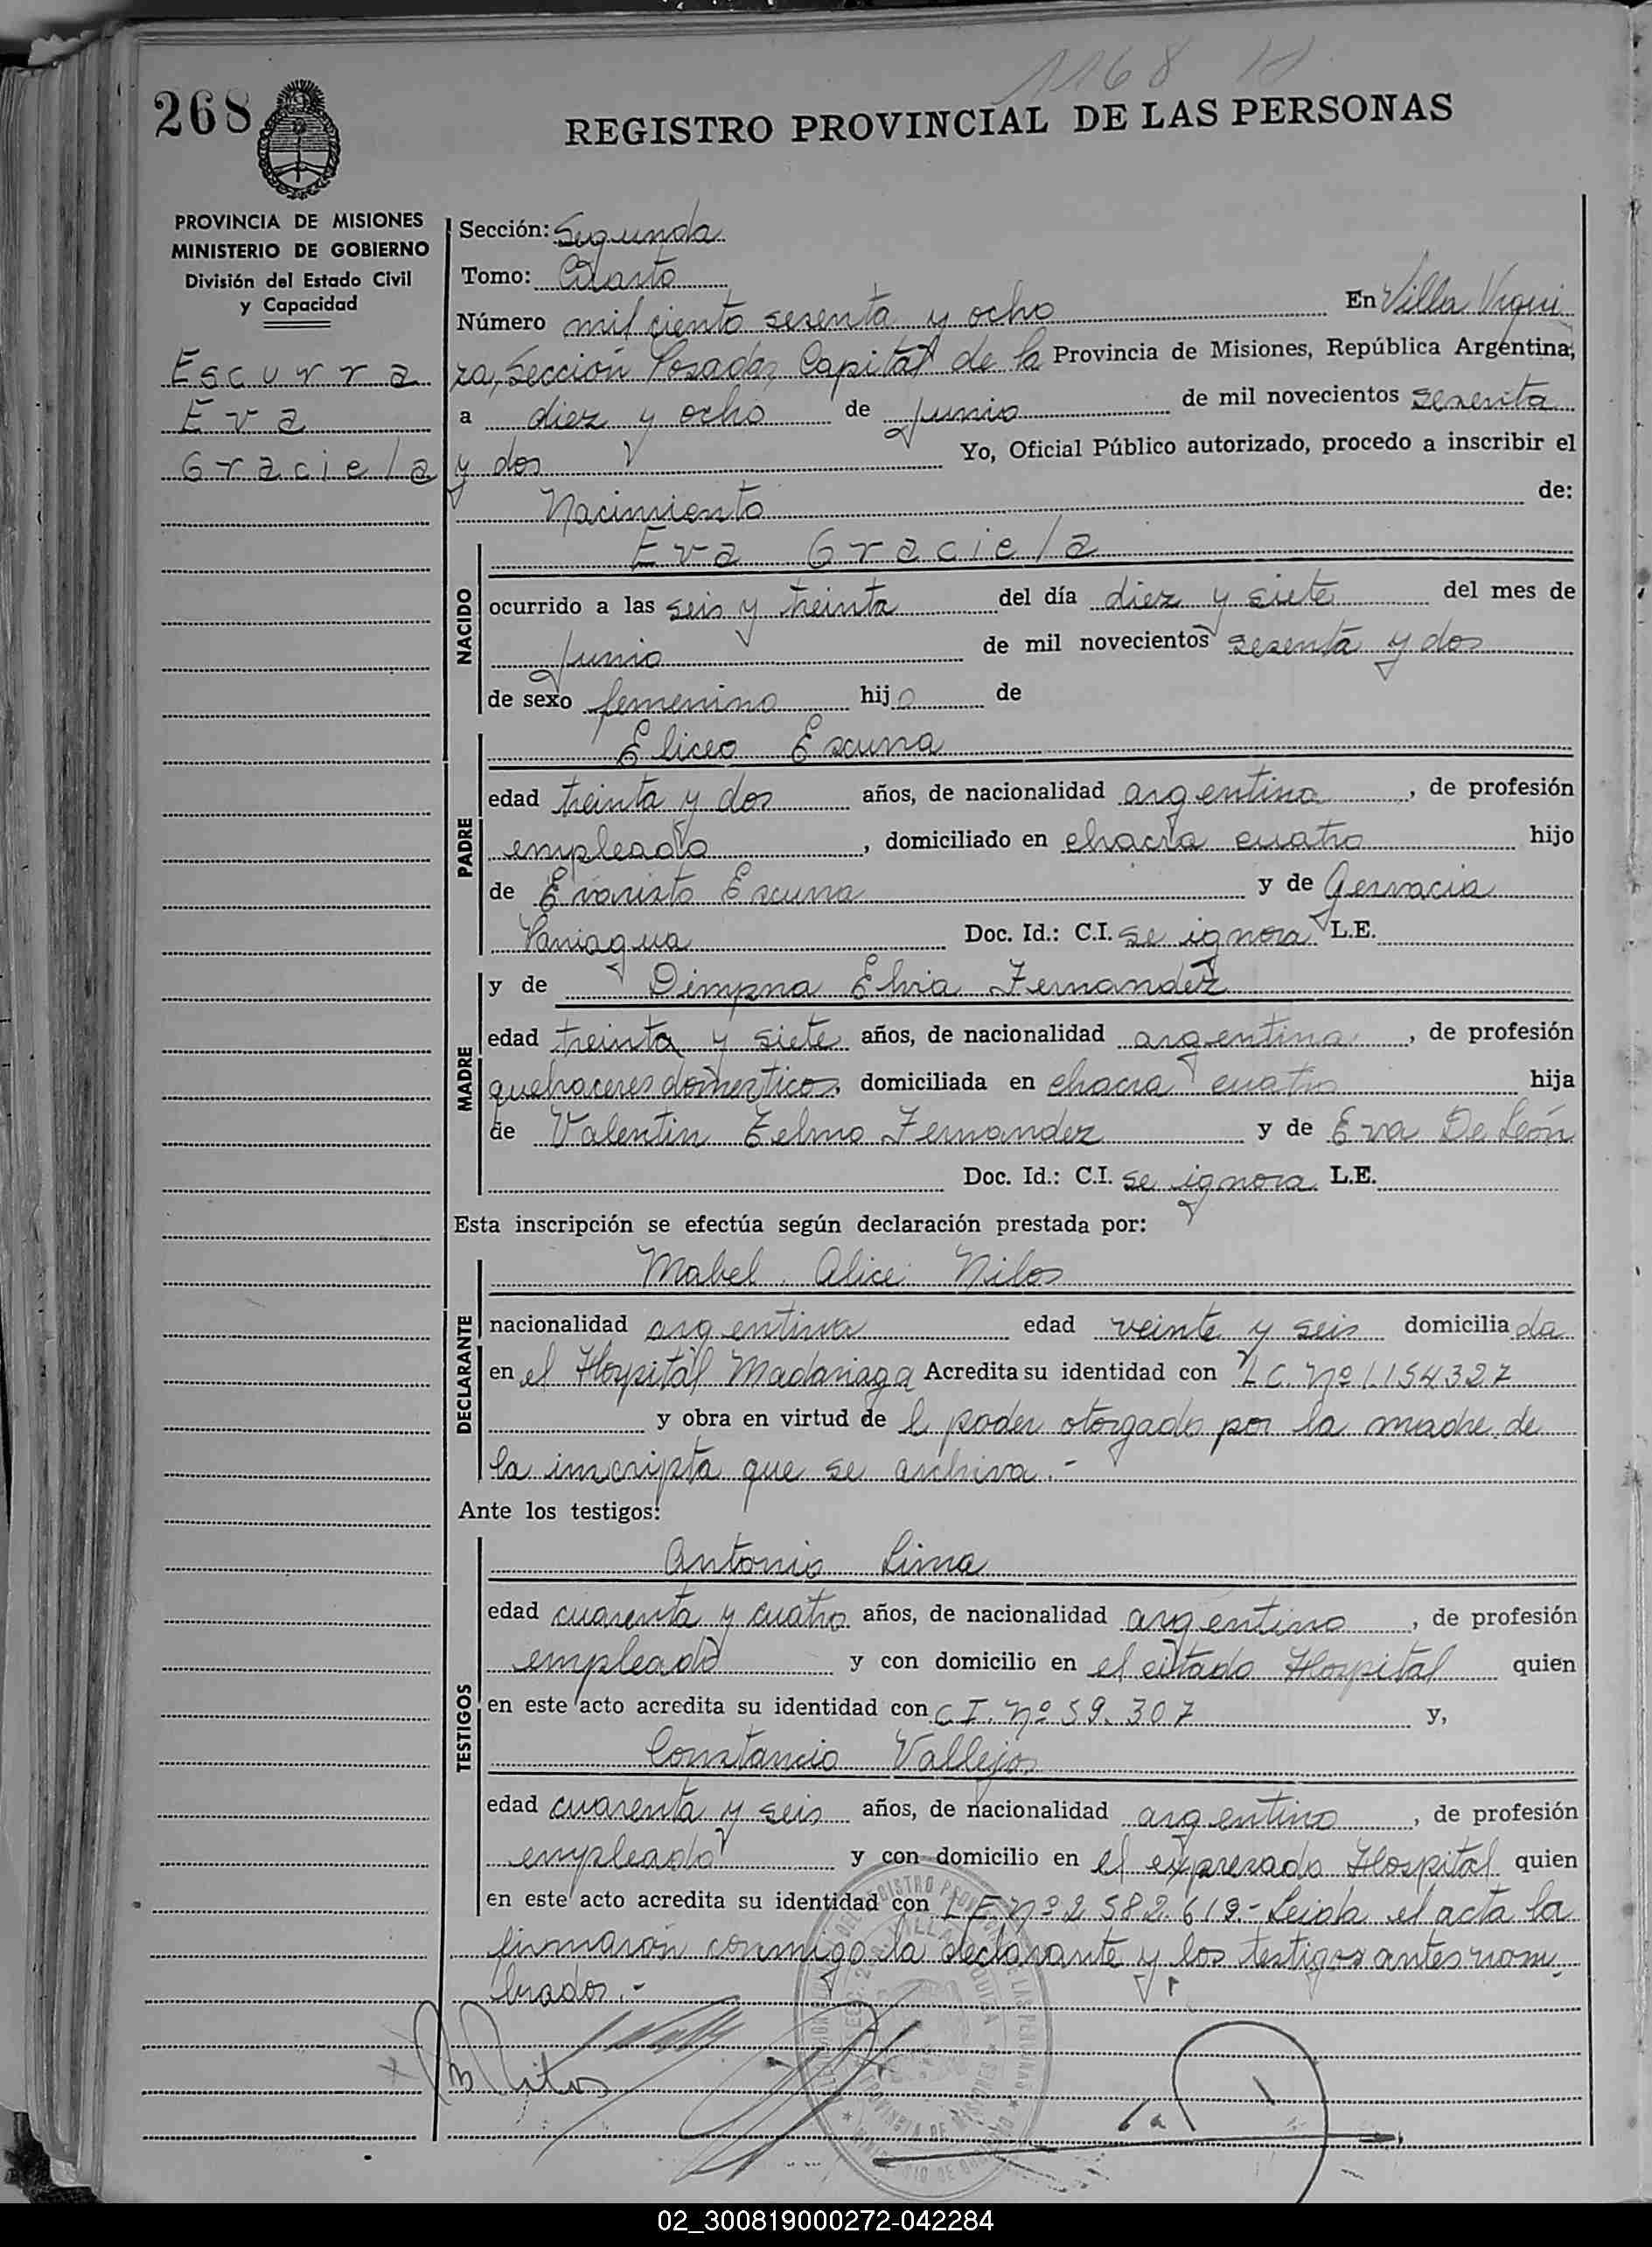 1168
268
REGISTRO PROVINCIAL DE LAS PERSONAS
PROVINCIA DE MISIONES
MINISTERIO DE GOBIERNO
División del Estado Civil
y Capacidad
Escurra
Eva
Graciela
Sección: Segunda
Tomo: Cuarto
Número mil ciento sesenta y ocho En Villa Urqui
za, Sección Posadas Capital de la Provincia de Misiones, República Argentina,
a diez y ocho de junio de mil novecientos sesenta
y dos Yo, Oficial Público autorizado, procedo a inscribir el
Nacimiento de:
NACIDO
Eva Graciela
ocurrido a las seis y treinta del día diez y siete del mes de
junio de mil novecientos sesenta y dos
de sexo femenino hijo de
PADRE
Eliceo Escurra
edad treinta y dos años, de nacionalidad argentino, de profesión
empleado, domiciliado en chacra cuatro hijo
de Evaristo Escurra y de Gervacia
Paniagua Doc. Id.: C.I. se ignora L.E.
MADRE
y de Dimpna Elvia Fernandez
edad treinta y siete años, de nacionalidad argentina, de profesión
quehaceres domesticos, domiciliada en chacra cuatro hija
de Valentin Telmo Fernandez y de Eva De León
Doc. Id.: C.I. se ignora L.E.
Esta inscripción se efectúa según declaración prestada por:
DECLARANTE
Mabel Alice Nilos
nacionalidad argentina edad veinte y seis domiciliada
en el Hospital Madariaga Acredita su identidad con L C. Nº 1.154327
y obra en virtud de l poder otorgado por la madre de
la inscripta que se archiva.-
Ante los testigos:
TESTIGOS
Antonio Lima
edad cuarenta y cuatro años, de nacionalidad argentino, de profesión
empleado y con domicilio en el citado Hospital quien
en este acto acredita su identidad con C I. Nº 59.307 y,
Constancio Vallejos
edad cuarenta y seis años, de nacionalidad argentino, de profesión
empleado y con domicilio en el expresado Hospital quien
en este acto acredita su identidad con L E Nº 2.582.619.- Leida el acta la
firmaron conmigo la declarante y los testigos antes nom
brados.-
02_300819000272-042284